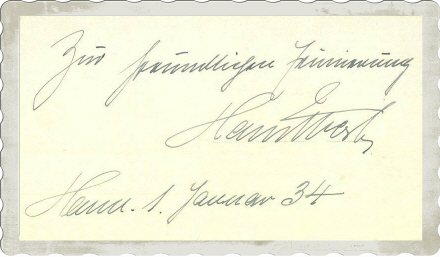 Zur freundlichen Erinnerung
Hans
Hann. 1. Januar 34